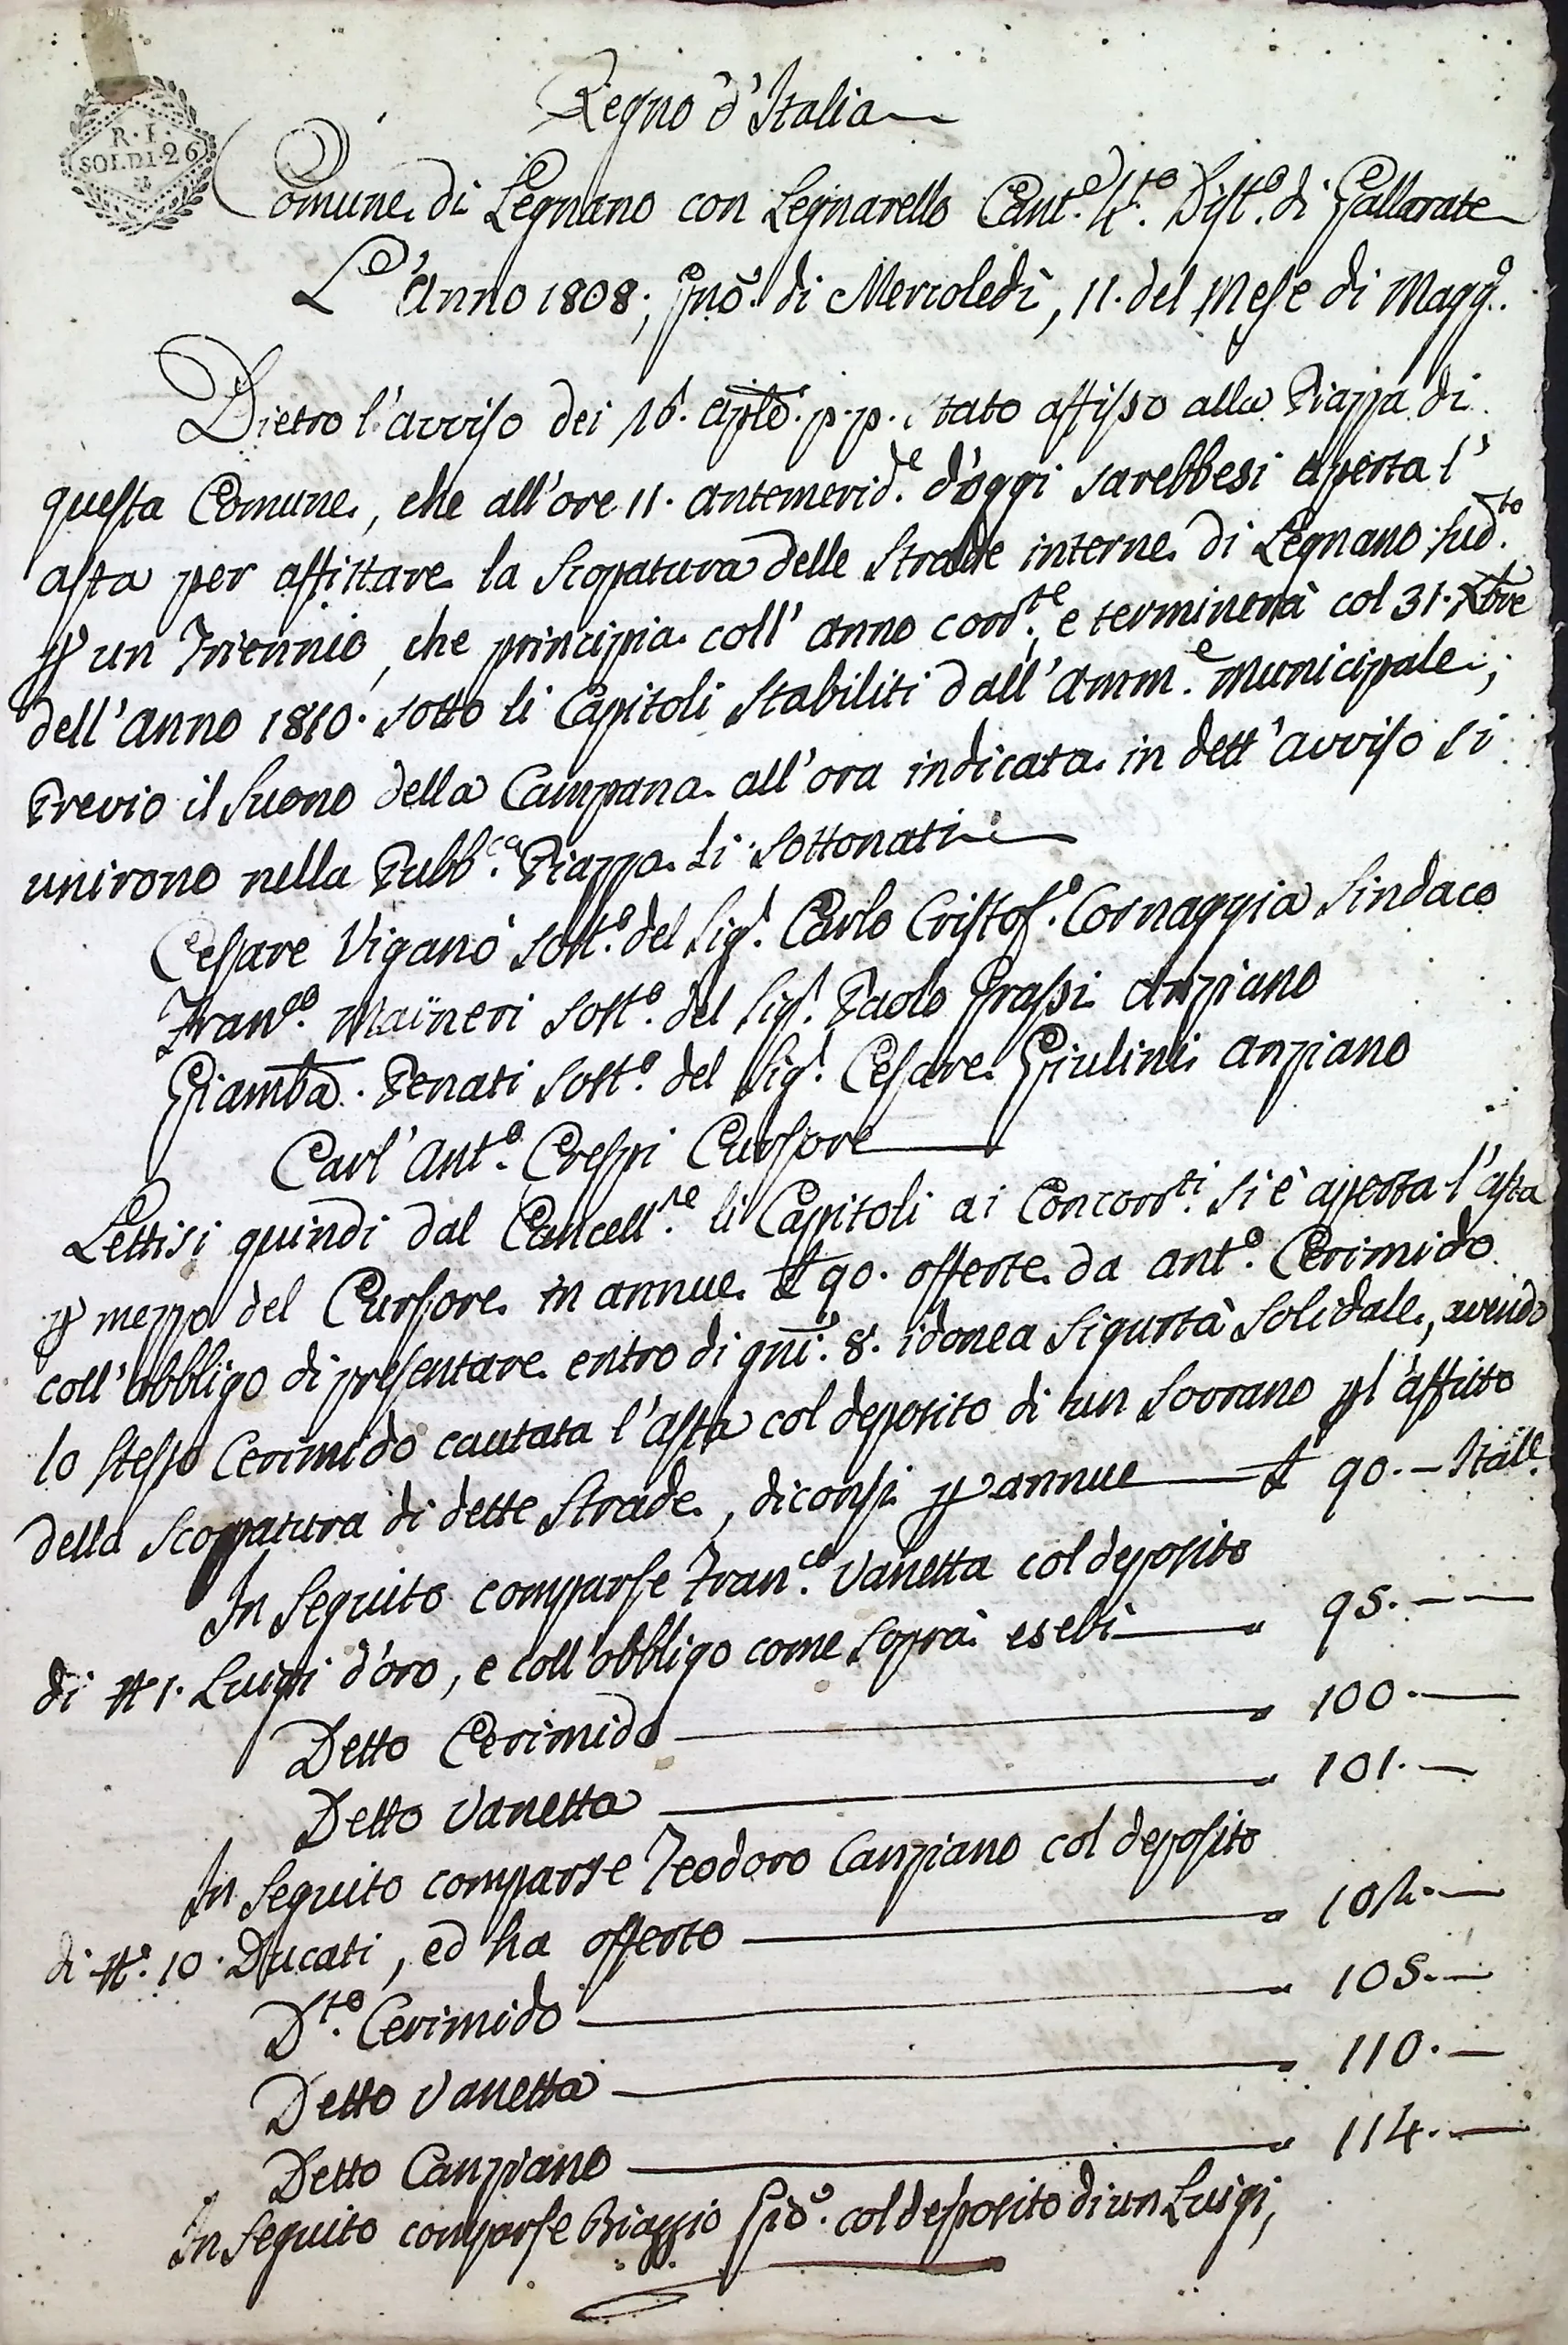 R. I.
SOLDI. 26
Regno d'Italia
Comune di Legnano con Legnarello Cant.e 4.to Dist.o di Gallarate
L'Anno 1808; Gno. di Mercoledì, 11. del Mese di Magg.o
Dietro l'avviso dei 16. Aple. p.p. stato affisso alla Piazza di
questa Comune, che all'ore 11. antemerid.e d'oggi sarebbesi aperta l'
asta per affittare la Scopatura delle Strade interne di Legnano sud.to
p un Triennio, che principia coll'anno corr.te, e terminerà col 31. Xbre
dell'anno 1810. sotto li Capitoli stabiliti dall'Amm.e Municipale;
Previo il suono della Campana all'ora indicata in dett'avviso si
unirono nella Pubb.ca Piazza li sottonati
Cesare Viganò sost.o del Sig.r Carlo Cristof.o Cornaggia Sindaco
Fran.co Maineri sost.o del Sig.r Paolo Grassi Anziano
Giamba. Penati sost.o del Sig.r Cesare Giulini Anziano
Carl'Ant.o Crespi Cursore
Lettisi quindi dal Cancell.re li Capitoli ai Concorr.ti si è aperta l'asta
p mezzo del Cursore in annue £ 90. offerte da Ant.o Cerimido
coll'obbligo di presentare entro di gni. 8. idonea Sigurtà Solidale, avendo
lo stesso Cerimido cautata l'asta col deposito di un Sovrano p l'affitto
della Scoppatura di dette Strade, diconsi p annue £ 90. - Itall.
In seguito comparse Fran.co Vanetta col deposito
di N.o 1. Luigi d'oro, e coll'obbligo come sopra esebì 95. -
Detto Cerimido 100. -
Detto Vanetta 101. -
In seguito comparse Teodoro Canziano col deposito
di N.o 10. Ducati, ed ha offerto 104. -
D.to Cerimido 105. -
Detto Vanetta 110. -
Detto Canziano 114. -
In seguito comparse Biaggio col deposito di un Luigi,